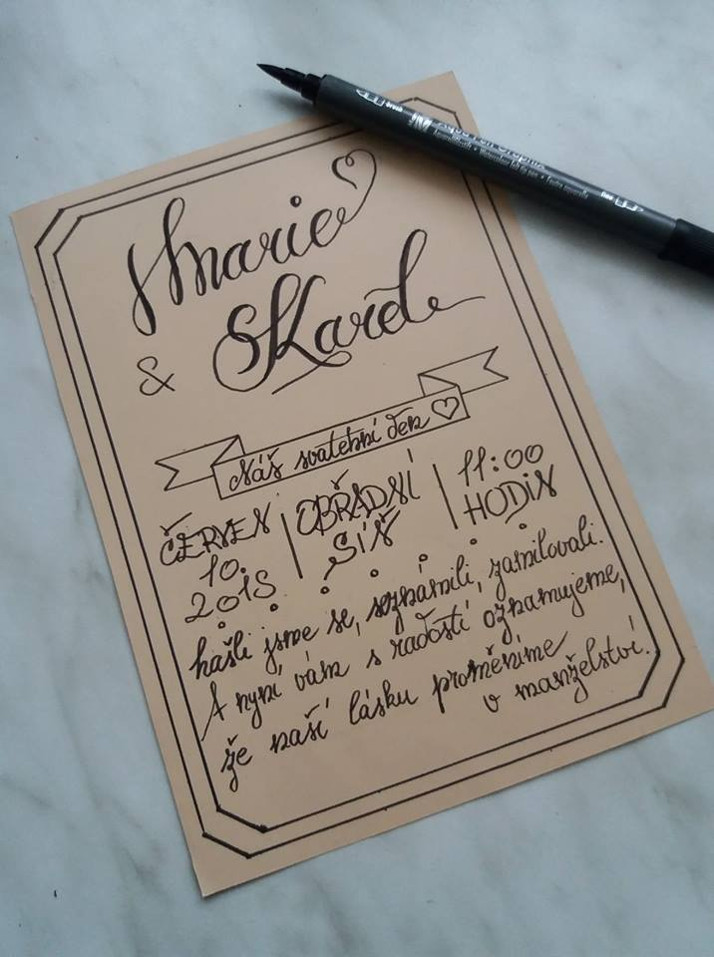 Marie
& Karel
Náš svatební den
ČERVEN
10.
2018
OBŘADNÍ
SÍŇ
11:00
HODIN
našli jsme se, seznámili, zamilovali.
A nyní vám s radostí oznamujeme,
že naší lásku proměníme
v manželství.
brush
Aqua Pen Graphic
fine